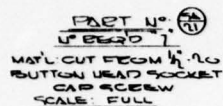 PART Nº 5A/21
Nº REQ'D 1
MAT'L: CUT FROM ¼"-20
BUTTON HEAD SOCKET
CAP SCREW
SCALE: FULL